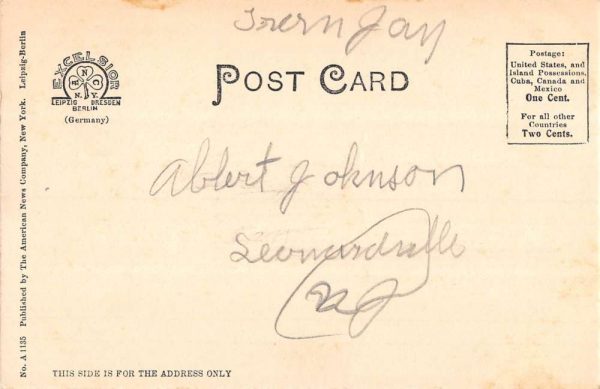 Jay
EXCELSIOR
LEIPZIG DRESDEN
BERLIN
(Germany)
POST CARD
Postage:
United States, and
Island Possessions,
Cuba, Canada and
Mexico
One Cent.
For all other
Countries
Two Cents.
Ablert Johnson
Leonardville
NJ
THIS SIDE IS FOR THE ADDRESS ONLY
No. A 1135 Published by The American News Company, New York. Leipzig-Berlin